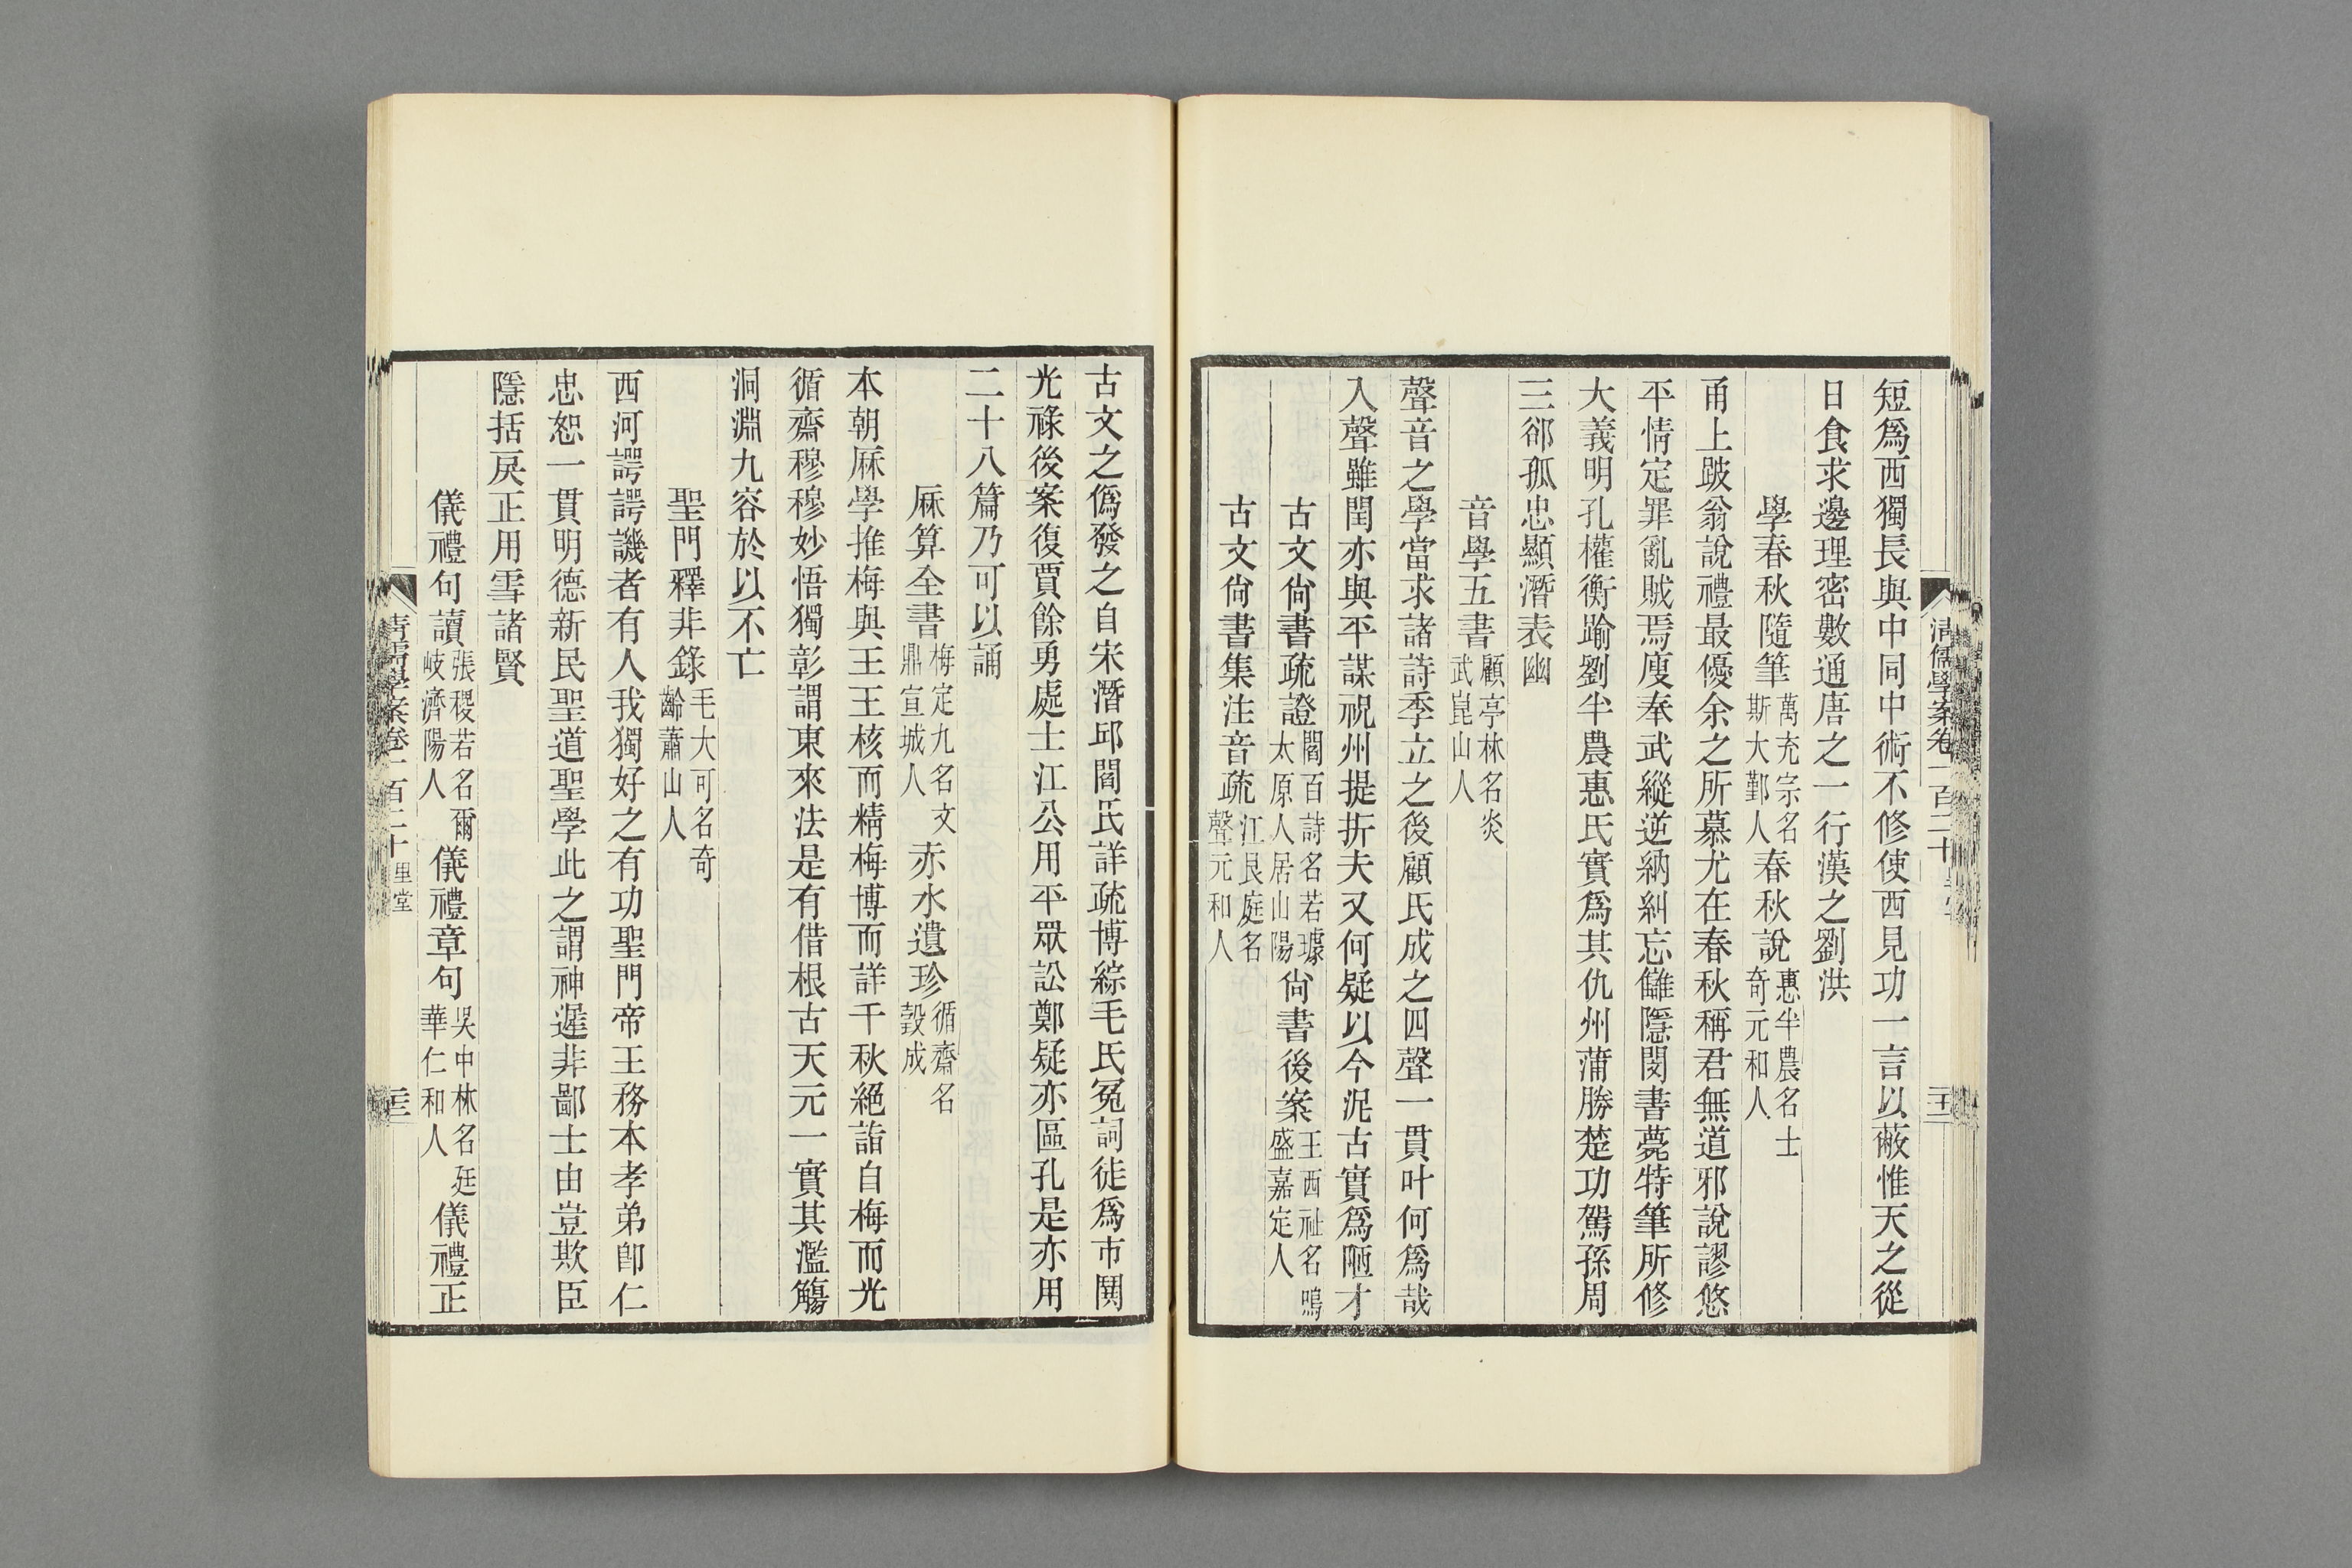 短爲西獨長與中同中術不修使西見功一言以蔽惟天之從
日食求邊理密數通唐之一行漢之劉洪
學春秋隨筆萬充宗名斯大鄞人春秋說惠半農名士奇元和人
甬上跛翁說禮最優余之所慕尤在春秋稱君無道邪說謬悠
平情定罪亂賊焉廋奉武縱逆納糾忘讎隱閔書薨特筆所修
大義明孔權衡踰劉半農惠氏實爲其仇州蒲勝楚功駕孫周
三郤孤忠顯潛表幽
音學五書顧亭林名炎武崑山人
聲音之學當求諸詩季立之後顧氏成之四聲一貫叶何爲哉
入聲雖閏亦與平謀祝州提折夫又何疑以今泥古實爲陋才
古文尙書疏證閻百詩名若璩太原人居山陽尙書後案王西沚名鳴盛嘉定人
古文尙書集注音疏江艮庭名聲元和人
清儒學案卷一百二十
古文之僞發之自宋潛邱閻氏詳疏博綜毛氏冤詞徒爲市鬨
光祿後案復賈餘勇處士江公用平眾訟鄭疑亦區孔是亦用
二十八篇乃可以誦
厤算全書梅定九名文鼎宣城人赤水遺珍循齋名瑴成
本朝厤學推梅與王王核而精梅博而詳千秋絕詣自梅而光
循齋穆穆妙悟獨彰謂東來法是有借根古天元一實其濫觴
洞淵九容於以不亡
聖門釋非錄毛大可名奇齡蕭山人
西河諤諤譏者有人我獨好之有功聖門帝王務本孝弟卽仁
忠恕一貫明德新民聖道聖學此之謂神遲非鄙士由豈欺臣
隱括戾正用雪諸賢
儀禮句讀張稷若名爾岐濟陽人儀禮章句吳中林名廷華仁和人儀禮正
清儒學案卷一百二十 里堂